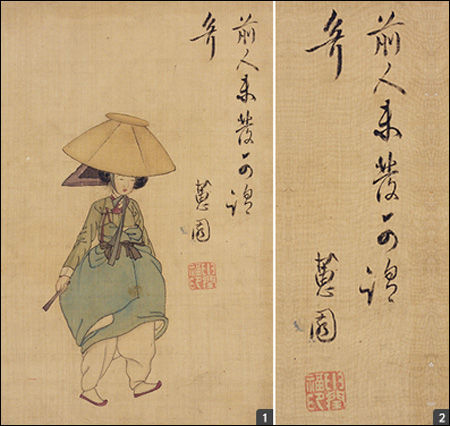 前人未發可謂
奇
蕙園
1
前人未發可謂
奇
蕙園
2